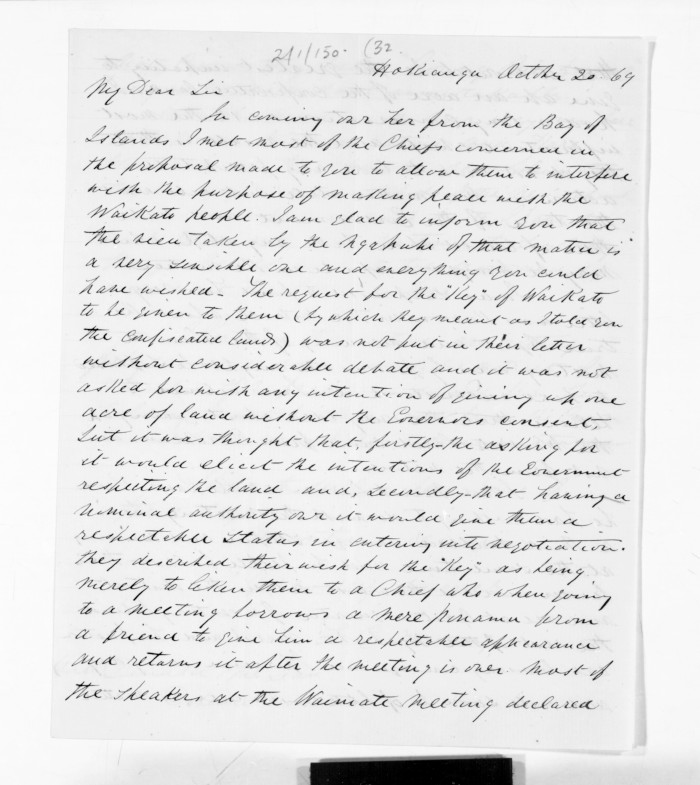 2/1/150. (32.
Hokianga October 20 69
My Dear Sir
In coming over her from the Bay of
Islands I met most of the Chiefs concerned in
the proposal made to you to allow them to interfere
with the purpose of making peace with the
Waikato people. I am glad to inform you that
the view taken by the Ngapuhi of that matter is
a very sensible one and everything you could
have wished - The request for the "Key" of Waikato
to be given to them (by which they meant as I told you
the confiscated lands) was not put in their letter
without considerable debate and it was not
asked for with any intention of giving up one
acre of land without the Governors consent,
but it was thought that, firstly - the asking for
it would elicit the intentions of the Government
respecting the land and, secondly - that having a
nominal authority over it would give them a
respectable status in entering into negotiation.
they described their wish for the "Key" as being
merely to liken them to a Chief who when going
to a meeting borrows a mere ponamu from
a friend to give him a respectable appearance
and returns it after the meeting is over. Most of
the speakers at the Waimate meeting declared